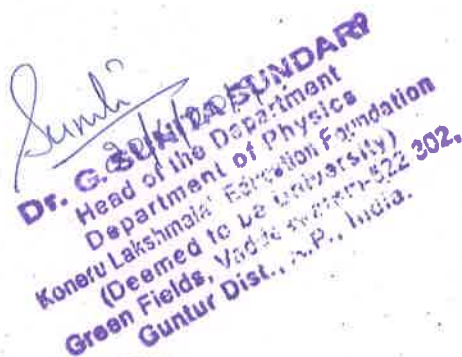 Dr. G. SUNITA SUNDARI
Head of the Department
Department of Physics
Koneru Lakshmaiah Education Foundation
(Deemed to be University)
Green Fields, 522 302.
Guntur Dist., A.P., India.